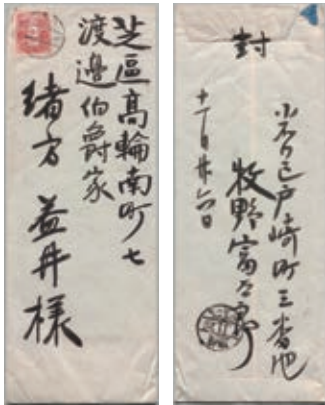 芝區高輪南町七
渡邊伯爵家
緒方益井様
封
小石川区戸崎町三番地
牧野富太郎
十一月廿六日